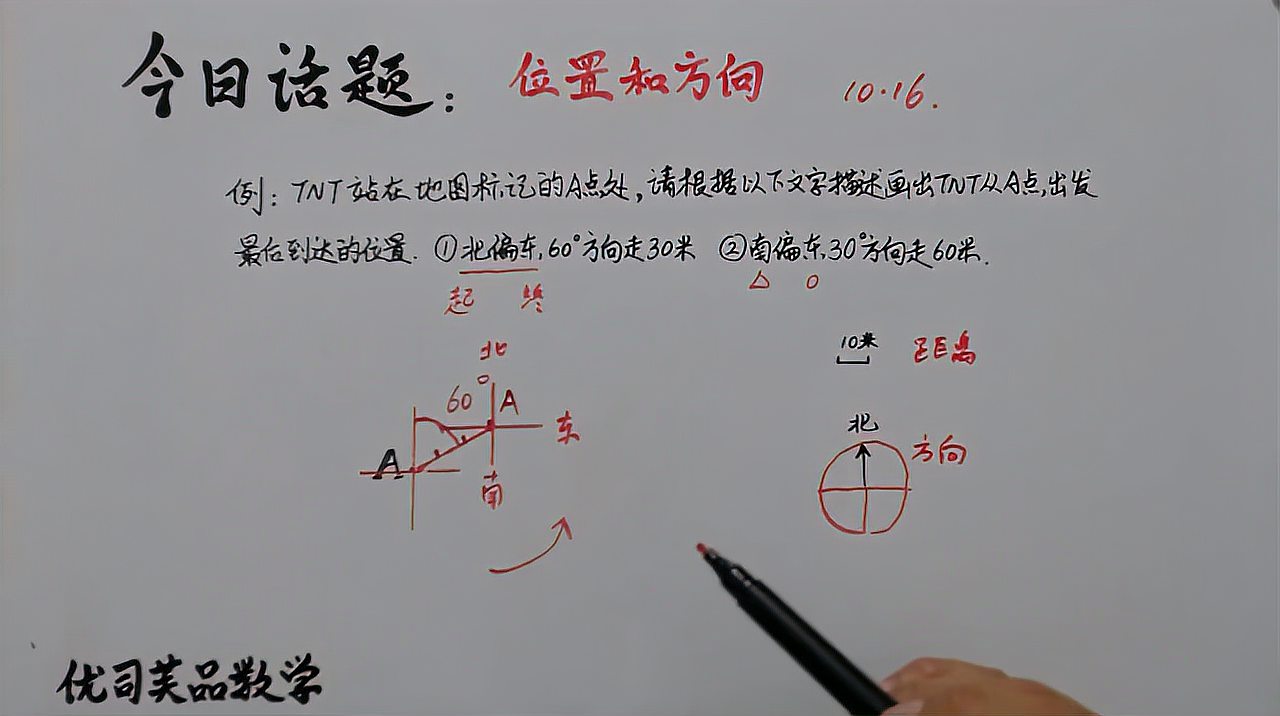 今日话题：位置和方向 10.16.
例：TNT站在地图标记的A点处，请根据以下文字描述画出TNT从A点出发
最后到达的位置. ①北偏东60°方向走30米 ②南偏东30°方向走60米.
起 终 △ O
北
10米 距离
60° A
东
北
方向
A
南
优司芙品数学